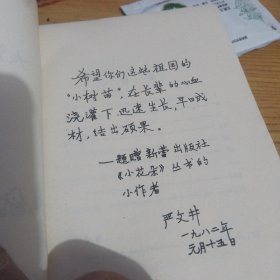 希望你们这些祖国的
“小树苗”，在长辈的心血
浇灌下迅速生长，早日成
材，结出硕果。
——题赠新蕾出版社
《小花朵》丛书的
小作者
严文井
一九八二年
元月十五日